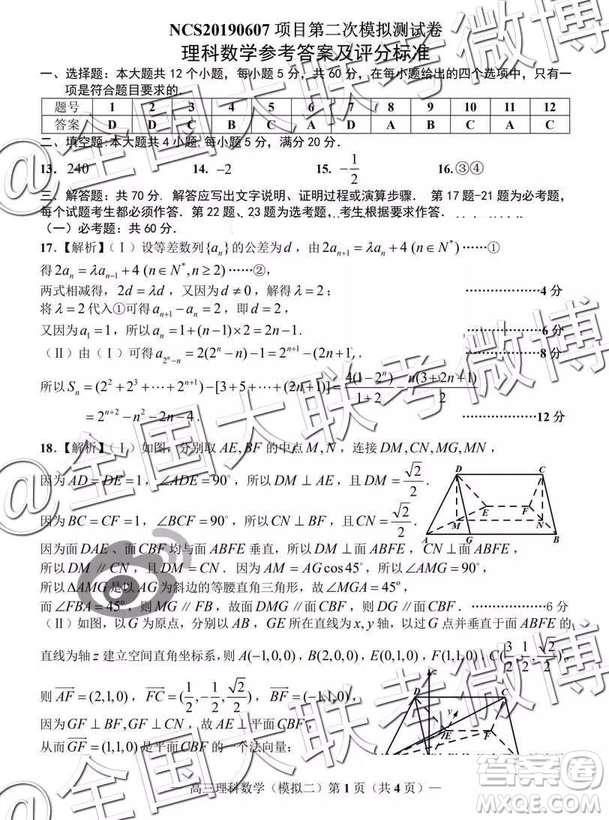 NCS20190607 项目第二次模拟测试卷
理科数学参考答案及评分标准
一、选择题：本大题共 12 个小题，每小题 5 分，共 60 分，在每小题给出的四个选项中，只有一
项是符合题目要求的.
题号 1 2 3 4 5 6 7 8 9 10 11 12
答案 D D C B C A A B A
二、填空题:本大题共 4 小题,每小题 5 分，满分 20 分.
13. 240 14. -2 15. -1/2 16.③④
三、解答题：共 70 分. 解答应写出文字说明、证明过程或演算步骤. 第 17 题-21 题为必考题，
每个试题考生都必须作答. 第 22 题、23 题为选考题，考生根据要求作答.
（一）必考题：共 60 分.
17.【解析】（Ⅰ）设等差数列{aₙ}的公差为 d，由 2aₙ₊₁ = λaₙ + 4 (n∈N*) ……①
得 2aₙ = λaₙ₋₁ + 4 (n∈N*, n≥2) ……②，
两式相减得，2d = λd，又因为 d≠0，解得 λ = 2； ………4 分
将 λ = 2 代入①可得 aₙ₊₁ − aₙ = 2，即 d = 2，
又因为 a₁ = 1，所以 aₙ = 1 + (n−1)×2 = 2n−1. ………6 分
（Ⅱ）由（Ⅰ）可得 a_{2ⁿ−n} = 2(2ⁿ − n) − 1 = 2ⁿ⁺¹ − (2n+1)， ………8 分
所以 Sₙ = (2² + 2³ + ⋯ + 2ⁿ⁺¹) − [3 + 5 + ⋯ + (2n+1)] = 4(1−2ⁿ)/(1−2) − n(3+2n+1)/2
= 2ⁿ⁺² − n² − 2n − 4. ………12 分
18.【解析】（Ⅰ）如图，分别取 AE, BF 的中点 M, N，连接 DM, CN, MG, MN，
因为 AD = DE = 1，∠ADE = 90°，所以 DM ⊥ AE，且 DM = √2/2.
因为 BC = CF = 1，∠BCF = 90°，所以 CN ⊥ BF，且 CN = √2/2.
D C M E F N A G B
因为面 DAE、面 CBF 均与面 ABFE 垂直，所以 DM ⊥ 面 ABFE，CN ⊥ 面 ABFE，
所以 DM ∥ CN，且 DM = CN. 因为 AM = AG cos45°，
所以 ΔAMG 是以 AG 为斜边的等腰直角三角形，故 ∠MGA = 45°，
而 ∠FBA = 45°，则 MG ∥ FB，故面 DMG ∥ 面 CBF，则 DG ∥ 面 CBF. ………6 分
（Ⅱ）如图，以 G 为原点，分别以 AB, GE 所在直线为 x, y 轴，以过 G 点并垂直于面 ABFE 的
直线为轴 z 建立空间直角坐标系，则 A(−1,0,0), B(2,0,0), E(0,1,0), F(1,1,0) C(3/2, 1/2, √2/2),
则 AF = (2,1,0)，FC = (1/2, −1/2, √2/2)，BF = (−1,1,0).
因为 GF ⊥ BF, GF ⊥ CN，故 GF ⊥ 平面 CBF，
从而 GF = (1,1,0) 是平面 CBF 的一个法向量；
— 高三理科数学（模拟二）第 1 页（共 4 页）—
@全国大联考微博
答案圈